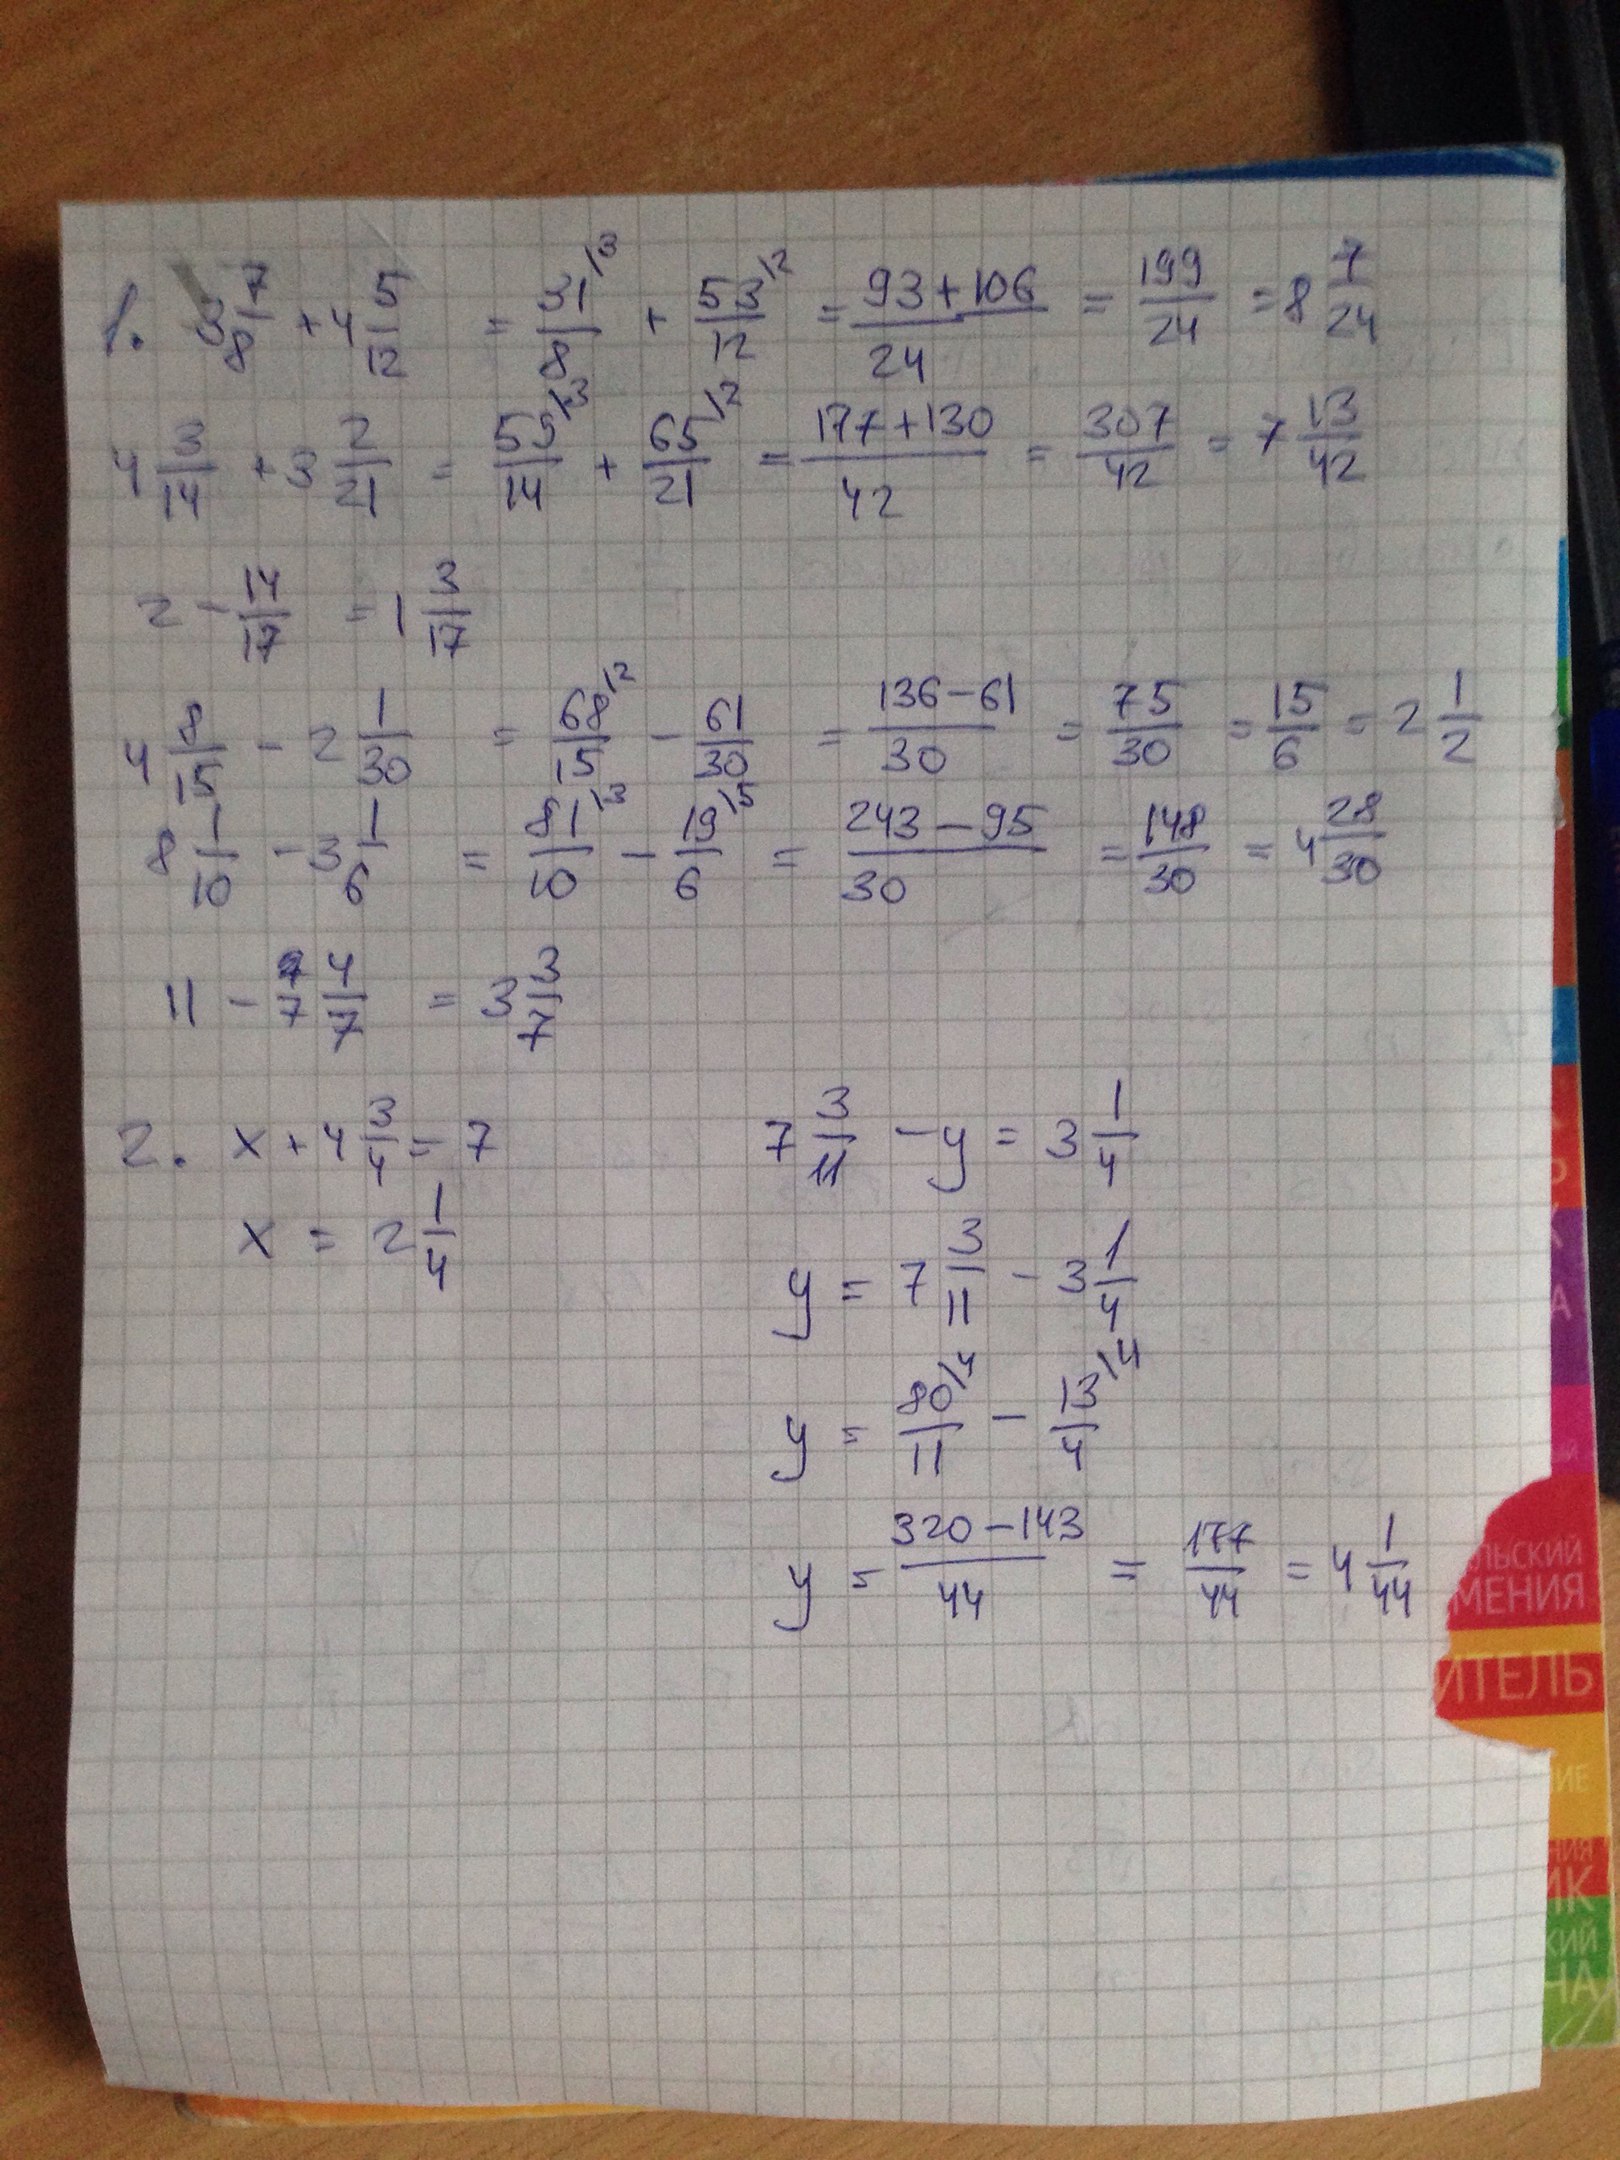 1. 3 7/8 + 4 5/12 = 31\3/8 + 53\2/12 = (93+106)/24 = 199/24 = 8 7/24
4 3/14 + 3 2/21 = 59\3/14 + 65\2/21 = (177+130)/42 = 307/42 = 7 13/42
2 - 14/17 = 1 3/17
4 8/15 - 2 1/30 = 68\2/15 - 61/30 = (136-61)/30 = 75/30 = 15/6 = 2 1/2
8 1/10 - 3 1/6 = 81\3/10 - 19\5/6 = (243-95)/30 = 148/30 = 4 28/30
11 - 7 4/7 = 3 3/7
2. x + 4 3/4 = 7
x = 2 1/4
7 3/11 - y = 3 1/4
y = 7 3/11 - 3 1/4
y = 80\4/11 - 13\14/4
y = (320-143)/44 = 177/44 = 4 1/44
ЛЬСКИЙ
МЕНИЯ
ИТЕЛЬ
ИЕ
НИЯ
ИК
КИЙ
НА